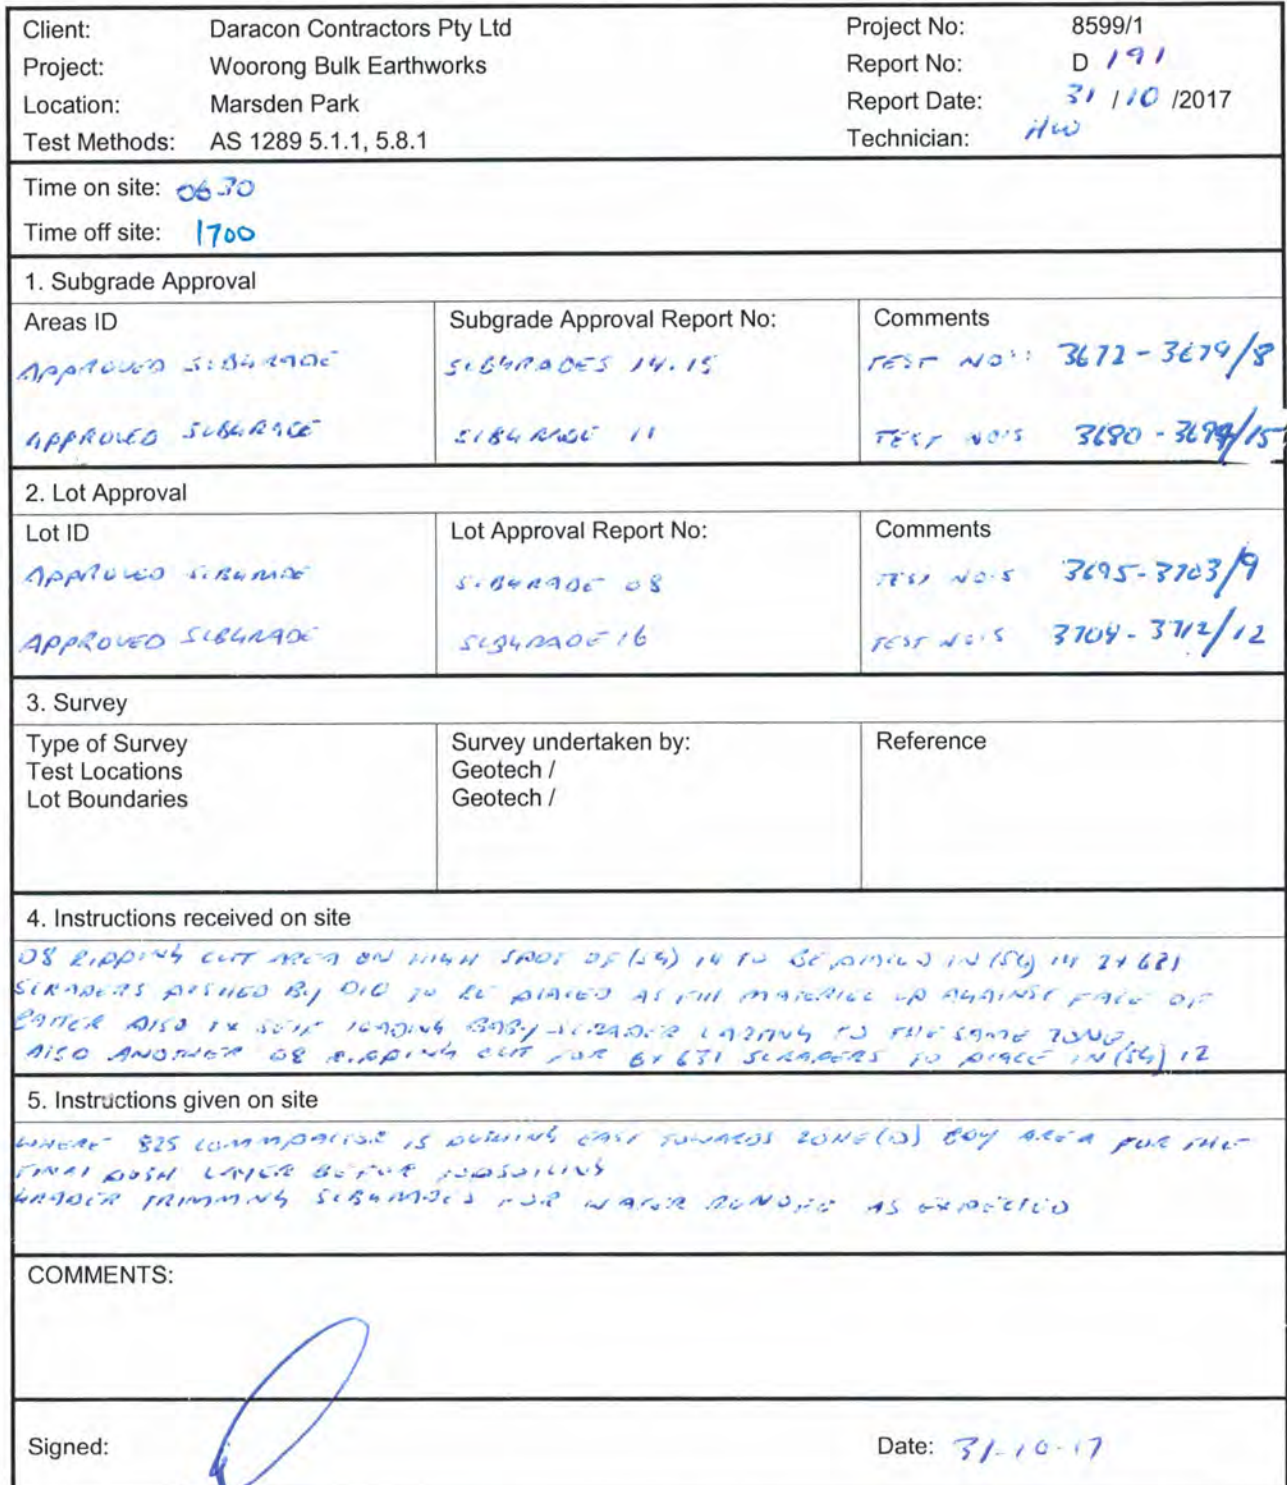 Client: Daracon Contractors Pty Ltd Project No: 8599/1
Project: Woorong Bulk Earthworks Report No: D 191
Location: Marsden Park Report Date: 31 / 10 /2017
Test Methods: AS 1289 5.1.1, 5.8.1 Technician: HW
Time on site: 0630
Time off site: 1700
1. Subgrade Approval
Areas ID Subgrade Approval Report No: Comments
APPROVED SUBGRADE SUBGRADES 14.15 TEST NO'S 3672 - 3679/8
APPROVED SUBGRADE SUBGRADE 11 TEST NO'S 3680 - 3694/15
2. Lot Approval
Lot ID Lot Approval Report No: Comments
APPROVED SUBGRADE SUBGRADE 08 TEST NO'S 3695-3703/9
APPROVED SUBGRADE SUBGRADE 16 TEST NO'S 3704 - 3712/12
3. Survey
Type of Survey Survey undertaken by: Reference
Test Locations Geotech /
Lot Boundaries Geotech /
4. Instructions received on site
D8 RIPPING CUT AREA ON HIGH SPOT OF (SG) 14 TO BE PLACED IN (SG) 14 2X 621
SCRAPERS PUSHED BY D10 TO BE PLACED AS FILL MATERIAL UP AGAINST FACE OF
BATTER ALSO 1X SELF LOADING BABY SCRAPER CARTING TO THE SAME ZONE.
ALSO ANOTHER D8 RIPPING CUT FOR 6X 631 SCRAPERS TO PLACE IN (SG) 12
5. Instructions given on site
WHERE 825 COMMPACTOR IS PUSHING EAST TOWARDS ZONE (D) AREA FOR THE
FINAL PUSH LAYER BEFOR TOPSOILING
GRADER TRIMMNG SUBGRADES FOR WATER RUNOFF AS EXPECTED
COMMENTS:
Signed: Date: 31-10-17